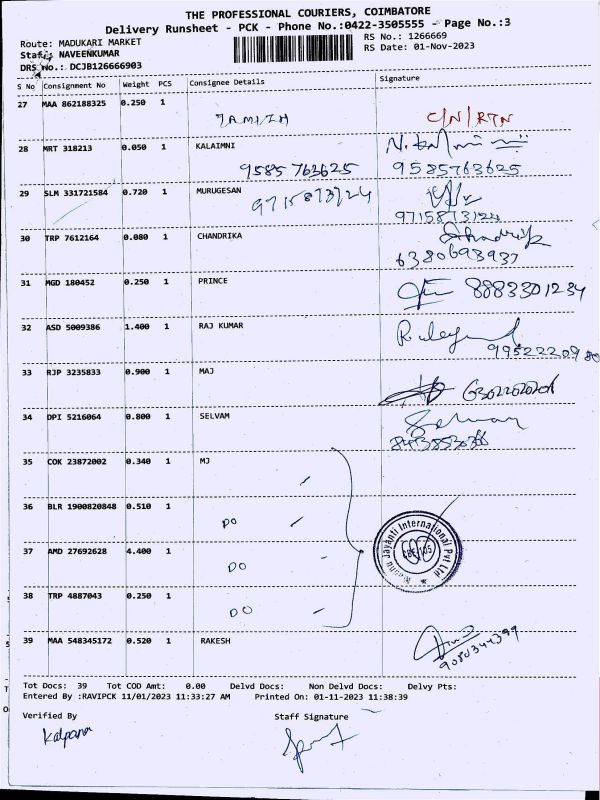 THE PROFESSIONAL COURIERS, COIMBATORE
Delivery Runsheet - PCK - Phone No.:0422-3505555 - Page No.:3
Route: MADUKARI MARKET
RS No.: 1266669
Staff: NAVEENKUMAR
RS Date: 01-Nov-2023
DRS No.: DCJB126666903
S No Consignment No Weight PCS Consignee Details Signature
27 MAA 862188325 0.250 1
TAMIZH C/N/RTN
28 MRT 318213 0.050 1 KALAIMNI
9585763625 9585763625
29 SLM 331721584 0.720 1 MURUGESAN
9715873124 9715873124
30 TRP 7612164 0.080 1 CHANDRIKA
6380693937
31 MGD 180452 0.250 1 PRINCE 8883301234
32 ASD 5009386 1.400 1 RAJ KUMAR
9952220980
33 RJP 3235833 0.900 1 MAJ
34 DPI 5216064 0.800 1 SELVAM Selvam
35 COK 23872002 0.340 1 MJ
36 BLR 1900820848 0.510 1
DO
37 AMD 27692628 4.400 1
DO
Jayanti International Pvt Ltd
38 TRP 4887043 0.250 1
DO
39 MAA 548345172 0.520 1 RAKESH
9080344399
Tot Docs: 39 Tot COD Amt: 0.00 Delvd Docs: Non Delvd Docs: Delvy Pts:
Entered By :RAVIPCK 11/01/2023 11:33:27 AM Printed On: 01-11-2023 11:38:39
Verified By Staff Signature
Kalpana